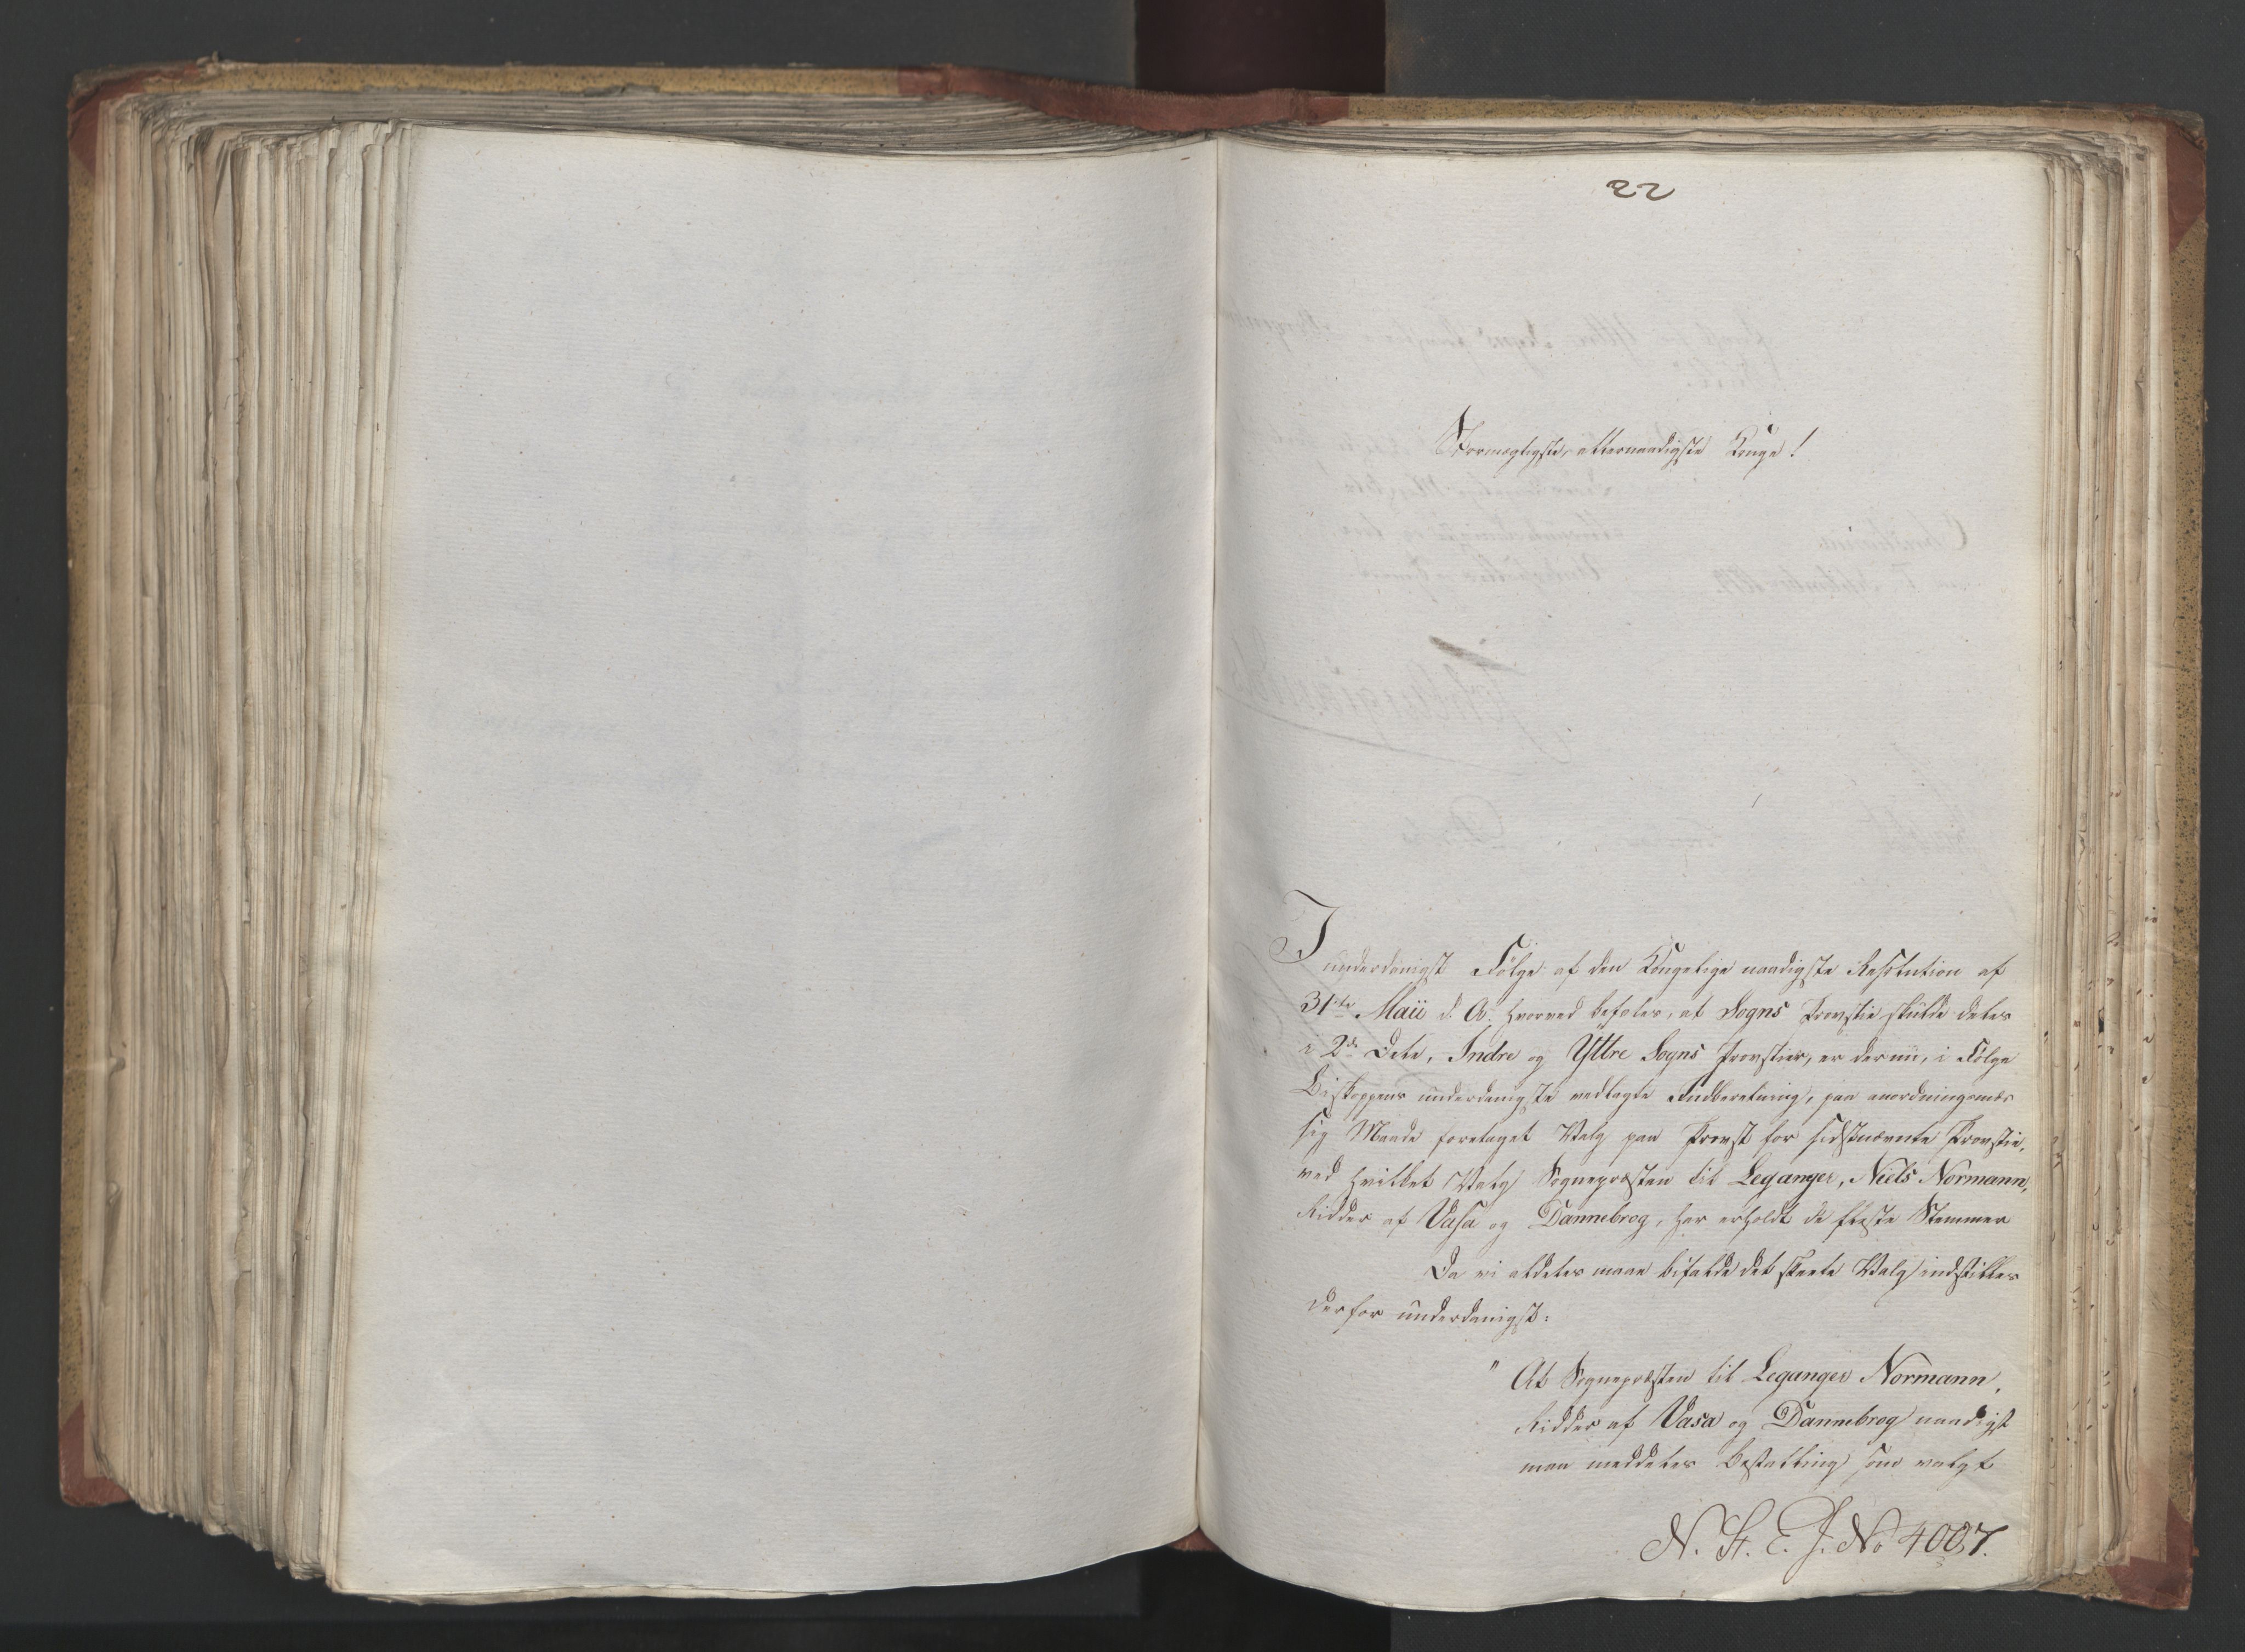 22
Stormægtigste, allernaadigste Konge!
I
underdanigst Følge af den Kongelige naadigste Resolution af
31te Maii d. A. hvorved befales, at Sogns Provstie skulde deles
i 2de Dele, Indre og Yttre Sogns Provstier, er der nu, i Følge
Biskoppens underdanigste vedlagte Indberetning, paa anordningsmæs
sig Maade foretaget Valg paa Provst for sidstnævnte Provstie,
ved hvilket Valg Sognepræsten til Leganger, Niels Normann,
Ridder af Vasa og Dannebrog, har erholdt de fleste Stemmer
Da vi aldeles maae bifalde det skeete Valg indstilles
derfor underdanigst:
" At Sognepræsten til Leganger Normann,
Ridder af Vasa og Dannebrog naadigst
maa meddeles Bestalling som valgt
N. St. E. J. No 4007.